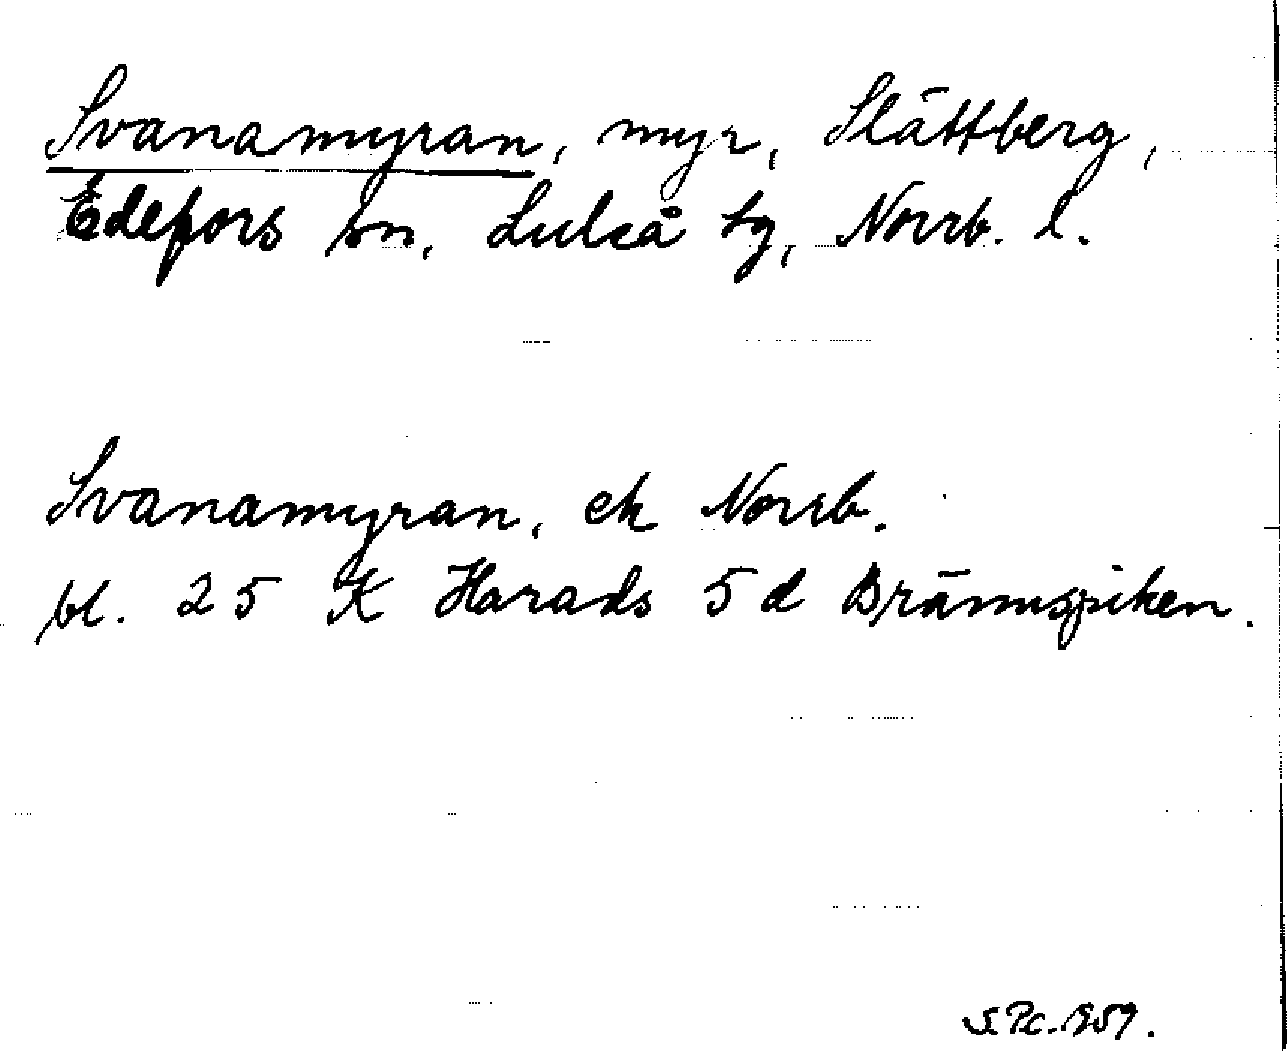 Svanamyran, myr, Slättberg,
Edefors sn, Luleå tg, Norrb. l.
Svanamyran, ek Norrb.
bl. 25 K Harads 5d Brännspiken.
1959.